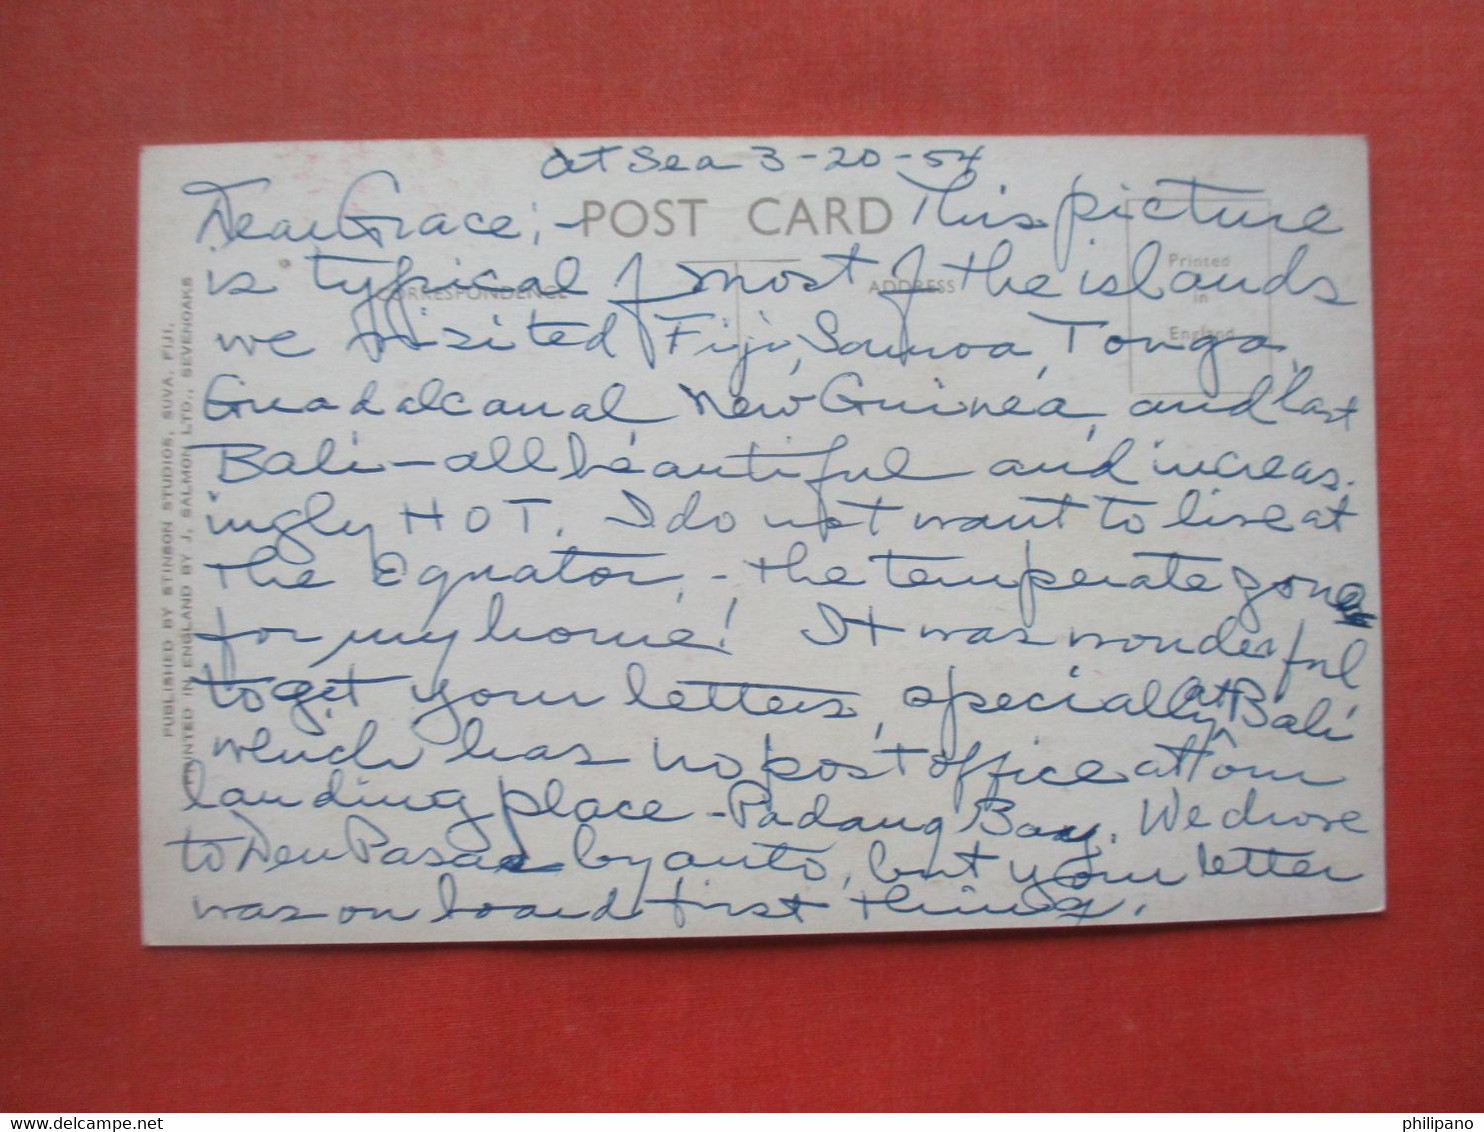 At Sea 3-20-54
Dear Grace;- This picture
is typical of most of the islands
we visited Fiji, Samoa, Tonga,
Guadalcanal, New Guinea, and last
Bali - all beautiful and increas-
ingly HOT. I do not want to live at
the Equator, - the temperate zone
for my home! It was wonderful
to get your letters, specially at Bali
which has no post office at our
landing place - Padang Bay. We drove
to Den Pasar by auto, but your letter
was on board first thing.
POST CARD
CORRESPONDENCE
ADDRESS
Printed
in
England
PUBLISHED BY STINSON STUDIOS, SUVA, FIJI.
PRINTED IN ENGLAND BY J. SALMON LTD., SEVENOAKS
philipano
delcampe.net